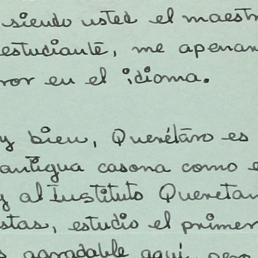 siendo usted el maestr
estudiante, me apenar
ror en el idioma.
y bien, Querétaro es
antigua casona como e
y al Instituto Queretan
stas, estudio el primer
s agradable aquí, pero